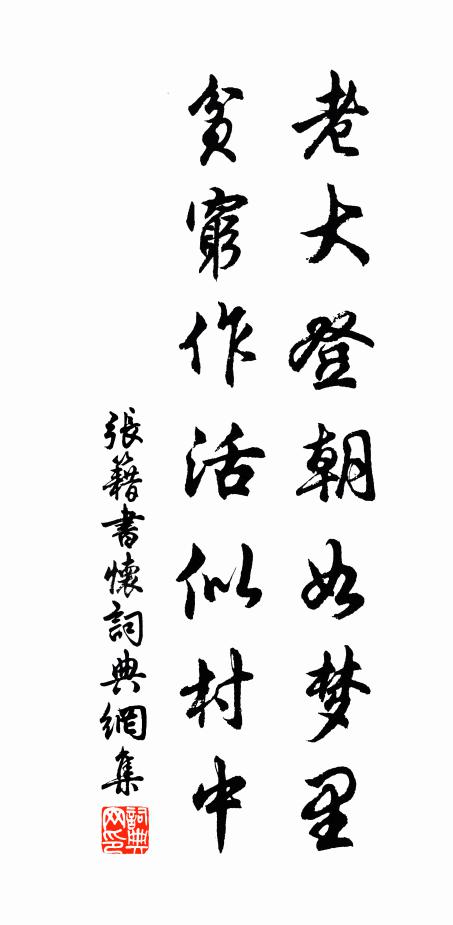 老大登朝如梦里
貧窮作活似村中
張籍書懷詞典網集
詞典网印